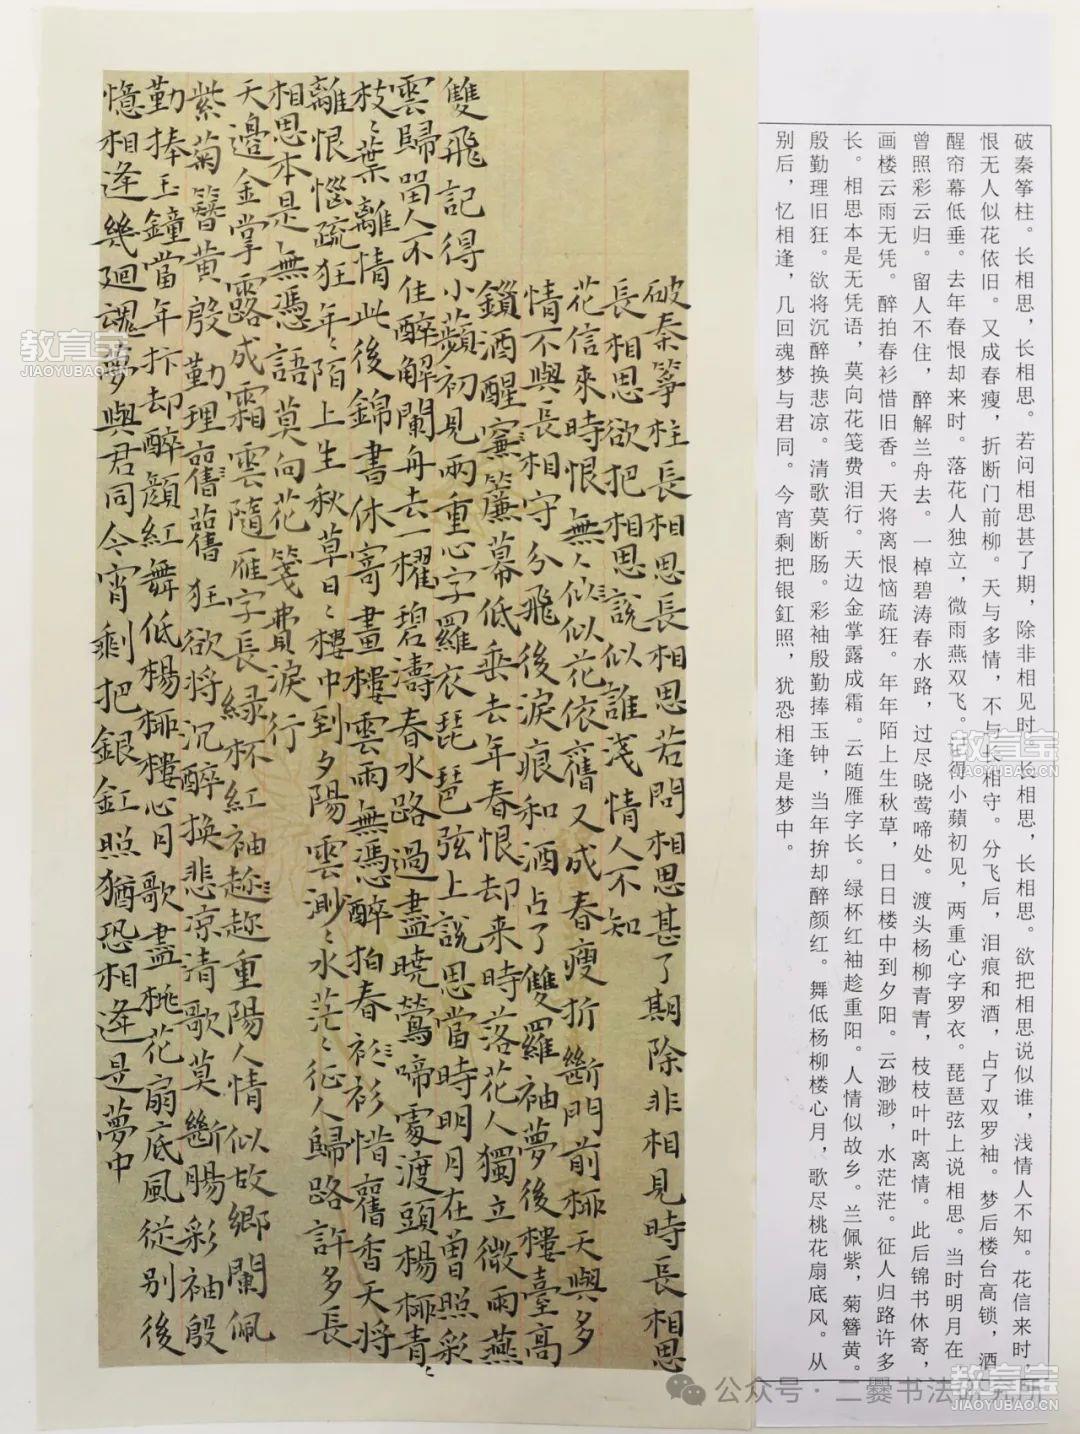 破秦筝柱。长相思，长相思。若问相思甚了期，除非相见时。长相思，长相思。欲把相思说似谁，浅情人不知。花信来时，
恨无人似花依旧。又成春瘦，折断门前柳。天与多情，不与长相守。分飞后，泪痕和酒，占了双罗袖。梦后楼台高锁，酒
醒帘幕低垂。去年春恨却来时。落花人独立，微雨燕双飞。记得小蘋初见，两重心字罗衣。琵琶弦上说相思。当时明月在
曾照彩云归。留人不住，醉解兰舟去。一棹碧涛春水路，过尽晓莺啼处。渡头杨柳青青，枝枝叶叶离情。此后锦书休寄，
画楼云雨无凭。醉拍春衫惜旧香。天将离恨恼疏狂。年年陌上生秋草，日日楼中到夕阳。云渺渺，水茫茫。征人归路许多
长。相思本是无凭语，莫向花笺费泪行。天边金掌露成霜。云随雁字长。绿杯红袖趁重阳。人情似故乡。兰佩紫，菊簪黄。
殷勤理旧狂。欲将沉醉换悲凉。清歌莫断肠。彩袖殷勤捧玉钟，当年拚却醉颜红。舞低杨柳楼心月，歌尽桃花扇底风。从
别后，忆相逢，几回魂梦与君同。今宵剩把银釭照，犹恐相逢是梦中。
破秦筝柱長相思長相思若問相思甚了期除非相見時長相思
長相思欲把相思説似誰浅情人不知
花信來時恨無人似似花依舊又成春瘦折斷門前柳天與多
情不與長相守分飛後淚痕和酒占了雙羅袖夢後樓臺高
鎖酒醒寒簾幕低垂去年春恨却来時落花人獨立微雨燕
雙飛記得小蘋初見兩重心字羅衣琵琶弦上説思當時明月在曾照彩
雲歸留人不住醉解闌舟去一櫂碧濤春水路過盡曉鶯啼處渡頭楊柳青〻
枝〻葉離情此後錦書休寄畫樓雲雨無憑醉拍春衫衫惜舊香天將
離恨惱疏狂年〻陌上生秋草日〻樓中到夕陽雲渺〻水茫〻征人歸路許多長
相思本是無憑語莫向花箋費淚行
天邊金掌露成霜雲隨雁字長緑杯紅袖趁趁重陽人情似故鄉闌佩
紫菊簪黄殷勤理舊舊狂欲將沉醉換悲凉清歌莫斷腸彩袖殷
勤捧玉鐘當年拚却醉顔紅舞低楊柳樓心月歌盡桃花扇底風從别後
憶相逢幾廻魂夢與君同今宵剩把銀釭照猶恐相逢是夢中
教育宝
JIAOYUBAO.CN
教育宝
JIAOYUBAO.CN
教育宝
JIAOYUBAO.CN
公众号·二爨书法研究所